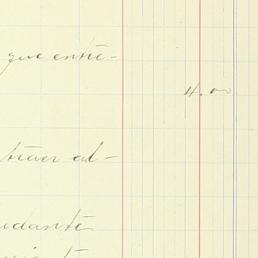 que entre-
4.00
traer al-
udante